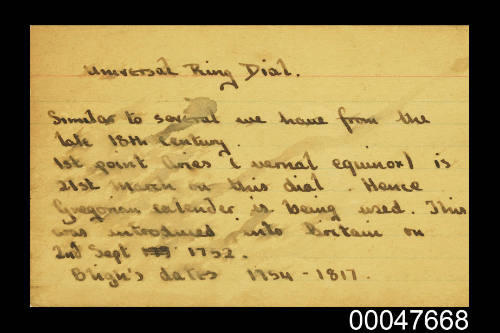 Universal Ring Dial.
Similar to several we have from the
late 18th century.
1st point Aries (vernal equinox) is
21st March on this dial. Hence
Gregorian calender is being used. This
was introduced into Britain on
2nd Sept 1752.
Bligh's dates 1754 - 1817.
00047668